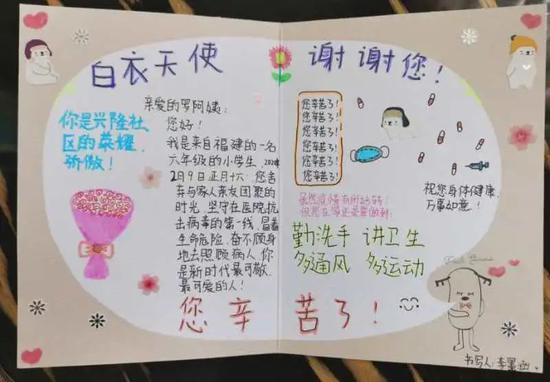 白衣天使
谢谢您！
你是兴隆社
区的荣耀，
骄傲！
亲爱的罗阿姨：
您好！
我是来自福建的一名
六年级的小学生，2020年
2月9日正月十六，您舍
弃与家人亲友团聚的
时光，坚守在医院抗
击病毒的第一线，冒着
生命危险，奋不顾身
地去照顾病人，你
是新时代最可敬、
最可爱的人！
您辛苦了！
您辛苦了！
您辛苦了！
您辛苦了！
您辛苦了！
您辛苦了！
虽然疫情有所好转，
但现在
勤洗手 讲卫生
多通风 多运动
祝您身体健康，
万事如意！
您辛苦了！
书写人：李